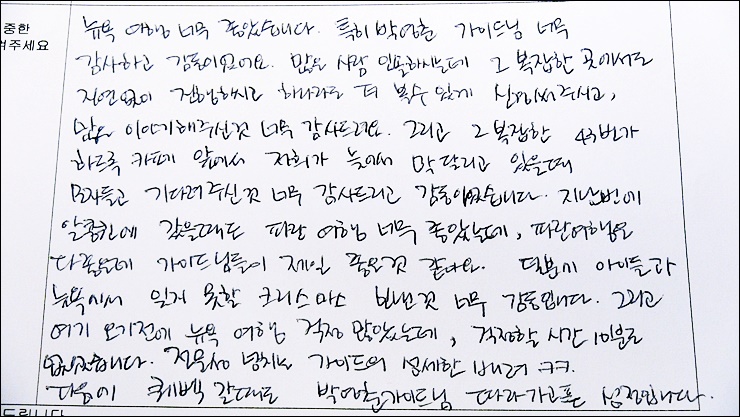 중한
겨주세요
뉴욕 여행 너무 좋았습니다. 특히 박영훈 가이드님 너무
감사하고 감동이었어요. 많은 사람 인솔하시는데 그 복잡한 곳에서도
지연없이 진행하시고 하나라도 더 볼수 있게 신경써주시고,
많은 이야기해주신것 너무 감사드려요. 그리고 그 복잡한 43번가
하드록 카페 앞에서 저희가 늦어서 막 달리고 있을때
모자들고 기다려주신것 너무 감사드리고 감동이었습니다. 지난번에
갔을때도 파란 여행 너무 좋았는데, 파란여행은
다좋은데 가이드님들이 제일 좋은것 같아요. 덕분에 아이들과
뉴욕에서 잊지 못할 크리스마스 보낸것 너무 감동입니다. 그리고
여기 오기전에 뉴욕 여행 걱정 많았는데, 걱정할 시간 10분도
없었습니다. 전문성 넘치는 가이드의 섬세한 배려 ㅋㅋ.
다음에 퀘벡 갈때도 가이드님 따라가고픈 심정입니다.
드립니다